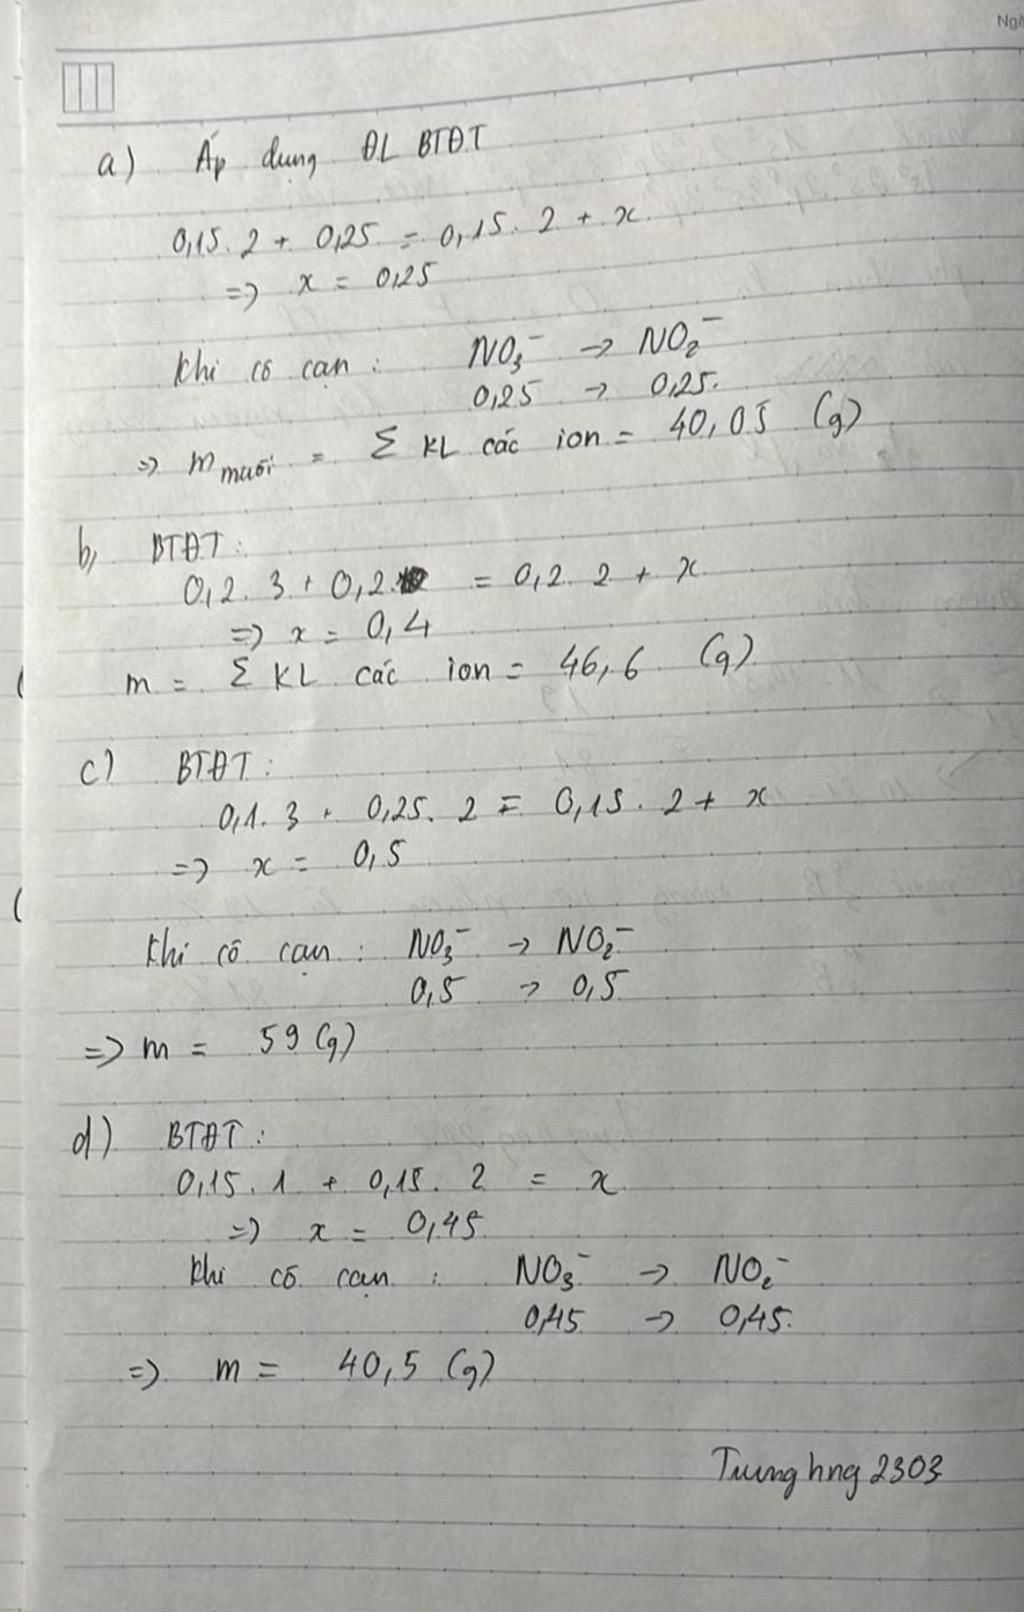 Ngà
a) Áp dụng ĐL BTĐT
0,15. 2 + 0,25 = 0,15. 2 + x
=> x = 0,25
Khi cô cạn : NO₃⁻ → NO₂⁻
0,25 → 0,25.
=> m muối = Σ KL các ion = 40,05 (g)
b, BTĐT :
0,2. 3 + 0,2. = 0,2. 2 + x
=> x = 0,4
m = Σ KL các ion = 46,6 (g)
c) BTĐT :
0,1. 3 + 0,25. 2 = 0,15. 2 + x
=> x = 0,5
Khi cô cạn : NO₃⁻ → NO₂⁻
0,5 → 0,5
=> m = 59 (g)
d) BTĐT :
0,15. 1 + 0,15. 2 = x
=> x = 0,45
Khi cô cạn : NO₃⁻ → NO₂⁻
0,45 → 0,45.
=> m = 40,5 (g)
Trunghng 2303